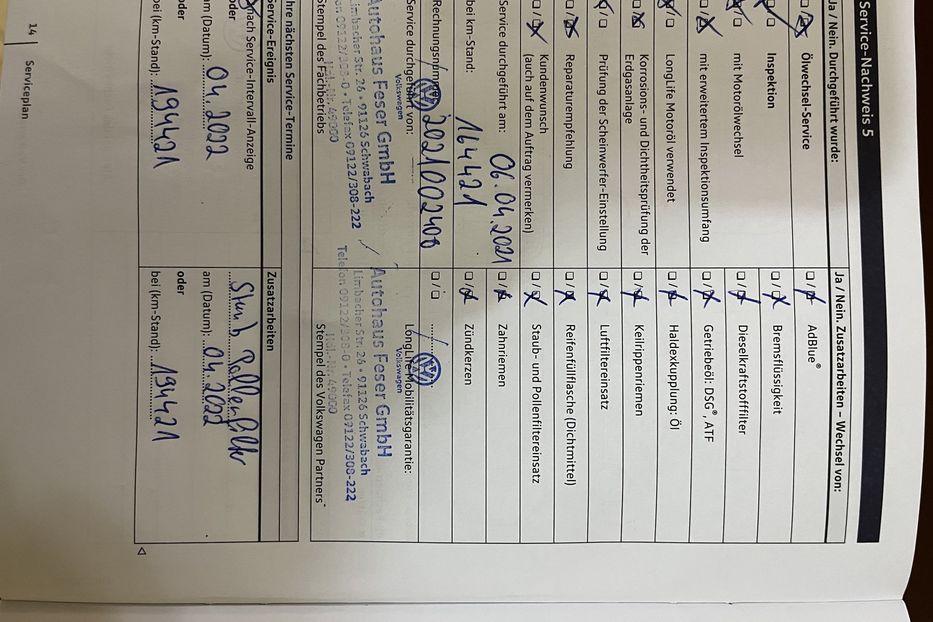 Service-Nachweis 5
Ja / Nein. Durchgeführt wurde:
Ölwechsel-Service
Inspektion
mit Motorölwechsel
mit erweitertem Inspektionsumfang
LongLife Motoröl verwendet
Korrosions- und Dichtheitsprüfung der
Erdgasanlage
Prüfung der Scheinwerfer-Einstellung
Reparaturempfehlung
Kundenwunsch
(auch auf dem Auftrag vermerken)
Service durchgeführt am:
06.04.2021
bei km-Stand:
164421
Rechnungsnummer:
2021002408
Service durchgeführt von:
Volkswagen
Autohaus Feser GmbH
Limbacher Str. 26 • 91126 Schwabach
Telefon 09122/308-0 • Telefax 09122/308-222
Stempel des Fachbetriebs
Ja / Nein. Zusatzarbeiten – Wechsel von:
AdBlue®
Bremsflüssigkeit
Dieselkraftstofffilter
Getriebeöl: DSG®, ATF
Haldexkupplung: Öl
Keilrippenriemen
Luftfiltereinsatz
Reifenfüllflasche (Dichtmittel)
Staub- und Pollenfiltereinsatz
Zahnriemen
Zündkerzen
LongLife-Mobilitätsgarantie:
Volkswagen
Autohaus Feser GmbH
Limbacher Str. 26 • 91126 Schwabach
Telefon 09122/308-0 • Telefax 09122/308-222
Stempel des Volkswagen Partners
Ihre nächsten Service-Termine
Service-Ereignis
nach Service-Intervall-Anzeige
oder
am (Datum): 04.2022
oder
bei (km-Stand): 194421
Zusatzarbeiten
am (Datum): 04.2022
oder
bei (km-Stand): 194421
14 Serviceplan